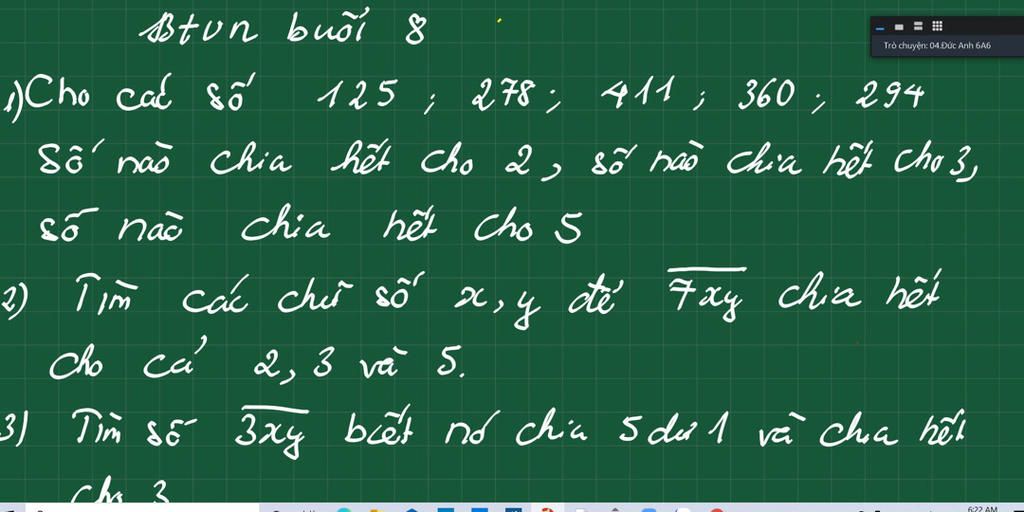 Btvn buổi 8
Trò chuyện: 04.Đức Anh 6A6
1) Cho các số 125 ; 278 ; 411 ; 360 ; 294
Số nào chia hết cho 2, số nào chia hết cho 3,
số nào chia hết cho 5
2) Tìm các chữ số x, y để 7xy chia hết
cho cả 2, 3 và 5.
3) Tìm số 3xy biết nó chia 5 dư 1 và chia hết
cho 3
6:22 AM